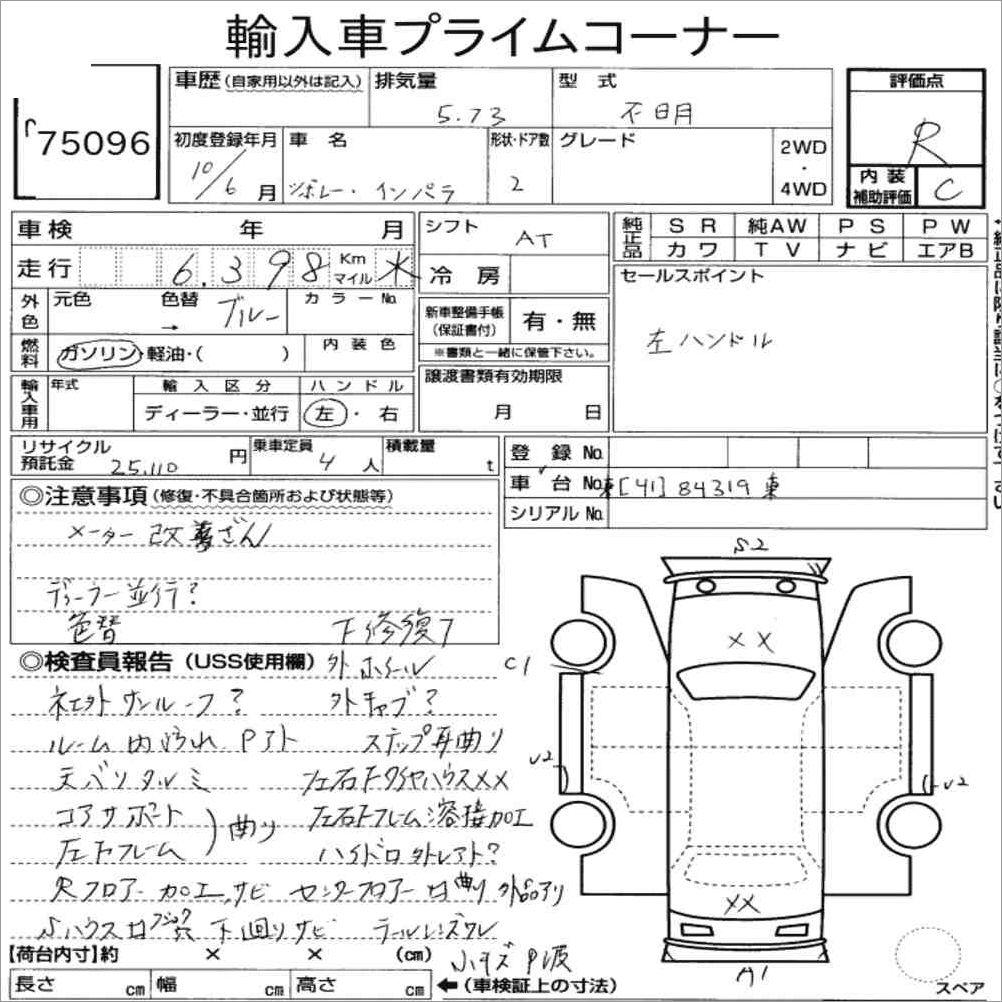 輸入車プライムコーナー
75096
車歴(自家用以外は記入)
排気量
5.73
型 式
不明
評価点
R
初度登録年月
10/6 月
車 名
シボレー・インパラ
形状・ドア数
2
グレード
2WD
・
4WD
内 装
補助評価
C
車検 年 月
シフト
AT
純正品
S R 純AW P S P W
カワ T V ナビ エアB
走行 6.398 Km マイル
冷房
セールスポイント
左ハンドル
外色 元色 色替 → ブルー
カラーNo.
新車整備手帳
(保証書付)
有・無
※書類と一緒に保管下さい。
燃料 ガソリン・軽油・( )
内 装 色
譲渡書類有効期限
月 日
輸入車用 年式
輸 入 区 分
ディーラー・並行
ハ ン ド ル
左・右
リサイクル
預託金 25,110 円
乗車定員 4 人
積載量 t
登 録 No.
車 台 No. [41] 84319
シリアルNo.
◎注意事項(修復・不具合箇所および状態等)
メーター改ざん
ディーラー並行?
色替 下修復
◎検査員報告(USS使用欄) 外ホイール
社外サンルーフ? 外キャブ?
ルーム内汚れ ステップ耳曲り
天バリタルミ 左右下タイヤハウスXX
コアサポート 曲り 左右下フレーム溶接加工
左下フレーム ハイドロ
Rフロアー加工、サビ センターフロアー 曲り 外品アリ
下回りサビ テールレンズワレ
小キズ
S2
XX
C1
U2
U2
XX
A1
【荷台内寸】約 × × (cm)
長さ cm 幅 cm 高さ cm
←(車検証上の寸法)
スペア